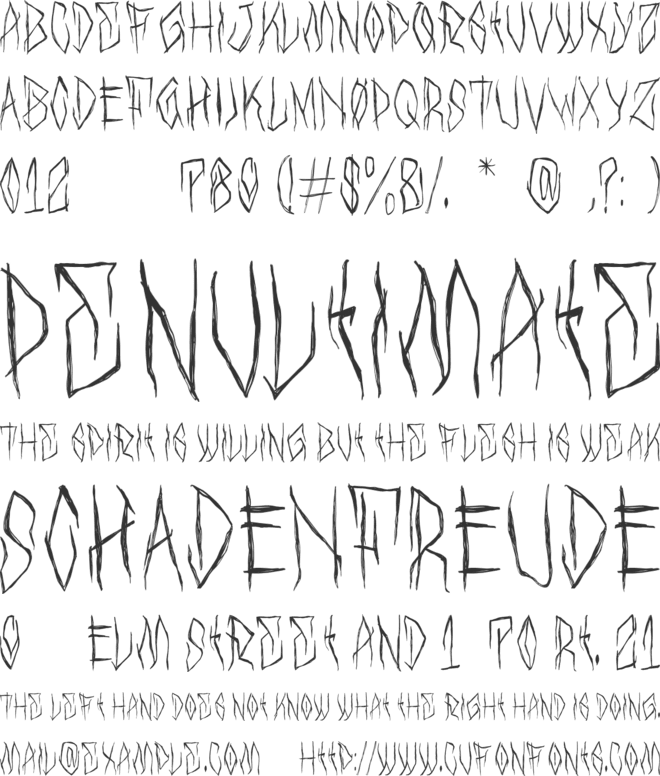 ABCDEFGHIJKLMNOPQRStUVWXYZ
ABCDEFGHIJKLMNOPQRSTUVWXYZ
012 780 (!#$%&/. * @ ,?: )
PENULtIMAtE
THE SPIRIt IS WILLING BUt tHE FLESH IS WEAK
SCHADENFREUDE
0 ELM StREEt AND 1 TO Rt. 21
THE LEFt HAND DOES NOt KNOW WHAt tHE RIGHt HAND IS DOING.
MAIL@EXAMPLE.COM HttP://WWW.CUFONFONtS.COM